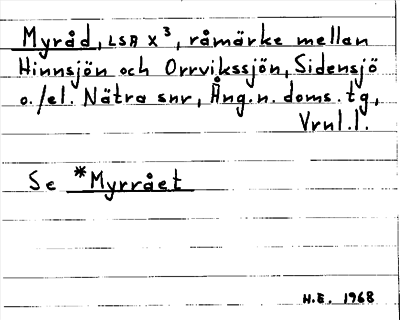 Myråd, LSA X³, råmärke mellan
Hinnsjön och Orrvikssjön, Sidensjö
o./el. Nätra snr, Ång. n. doms. tg,
Vrnl. l.
Se *Myrrået
H.E. 1968